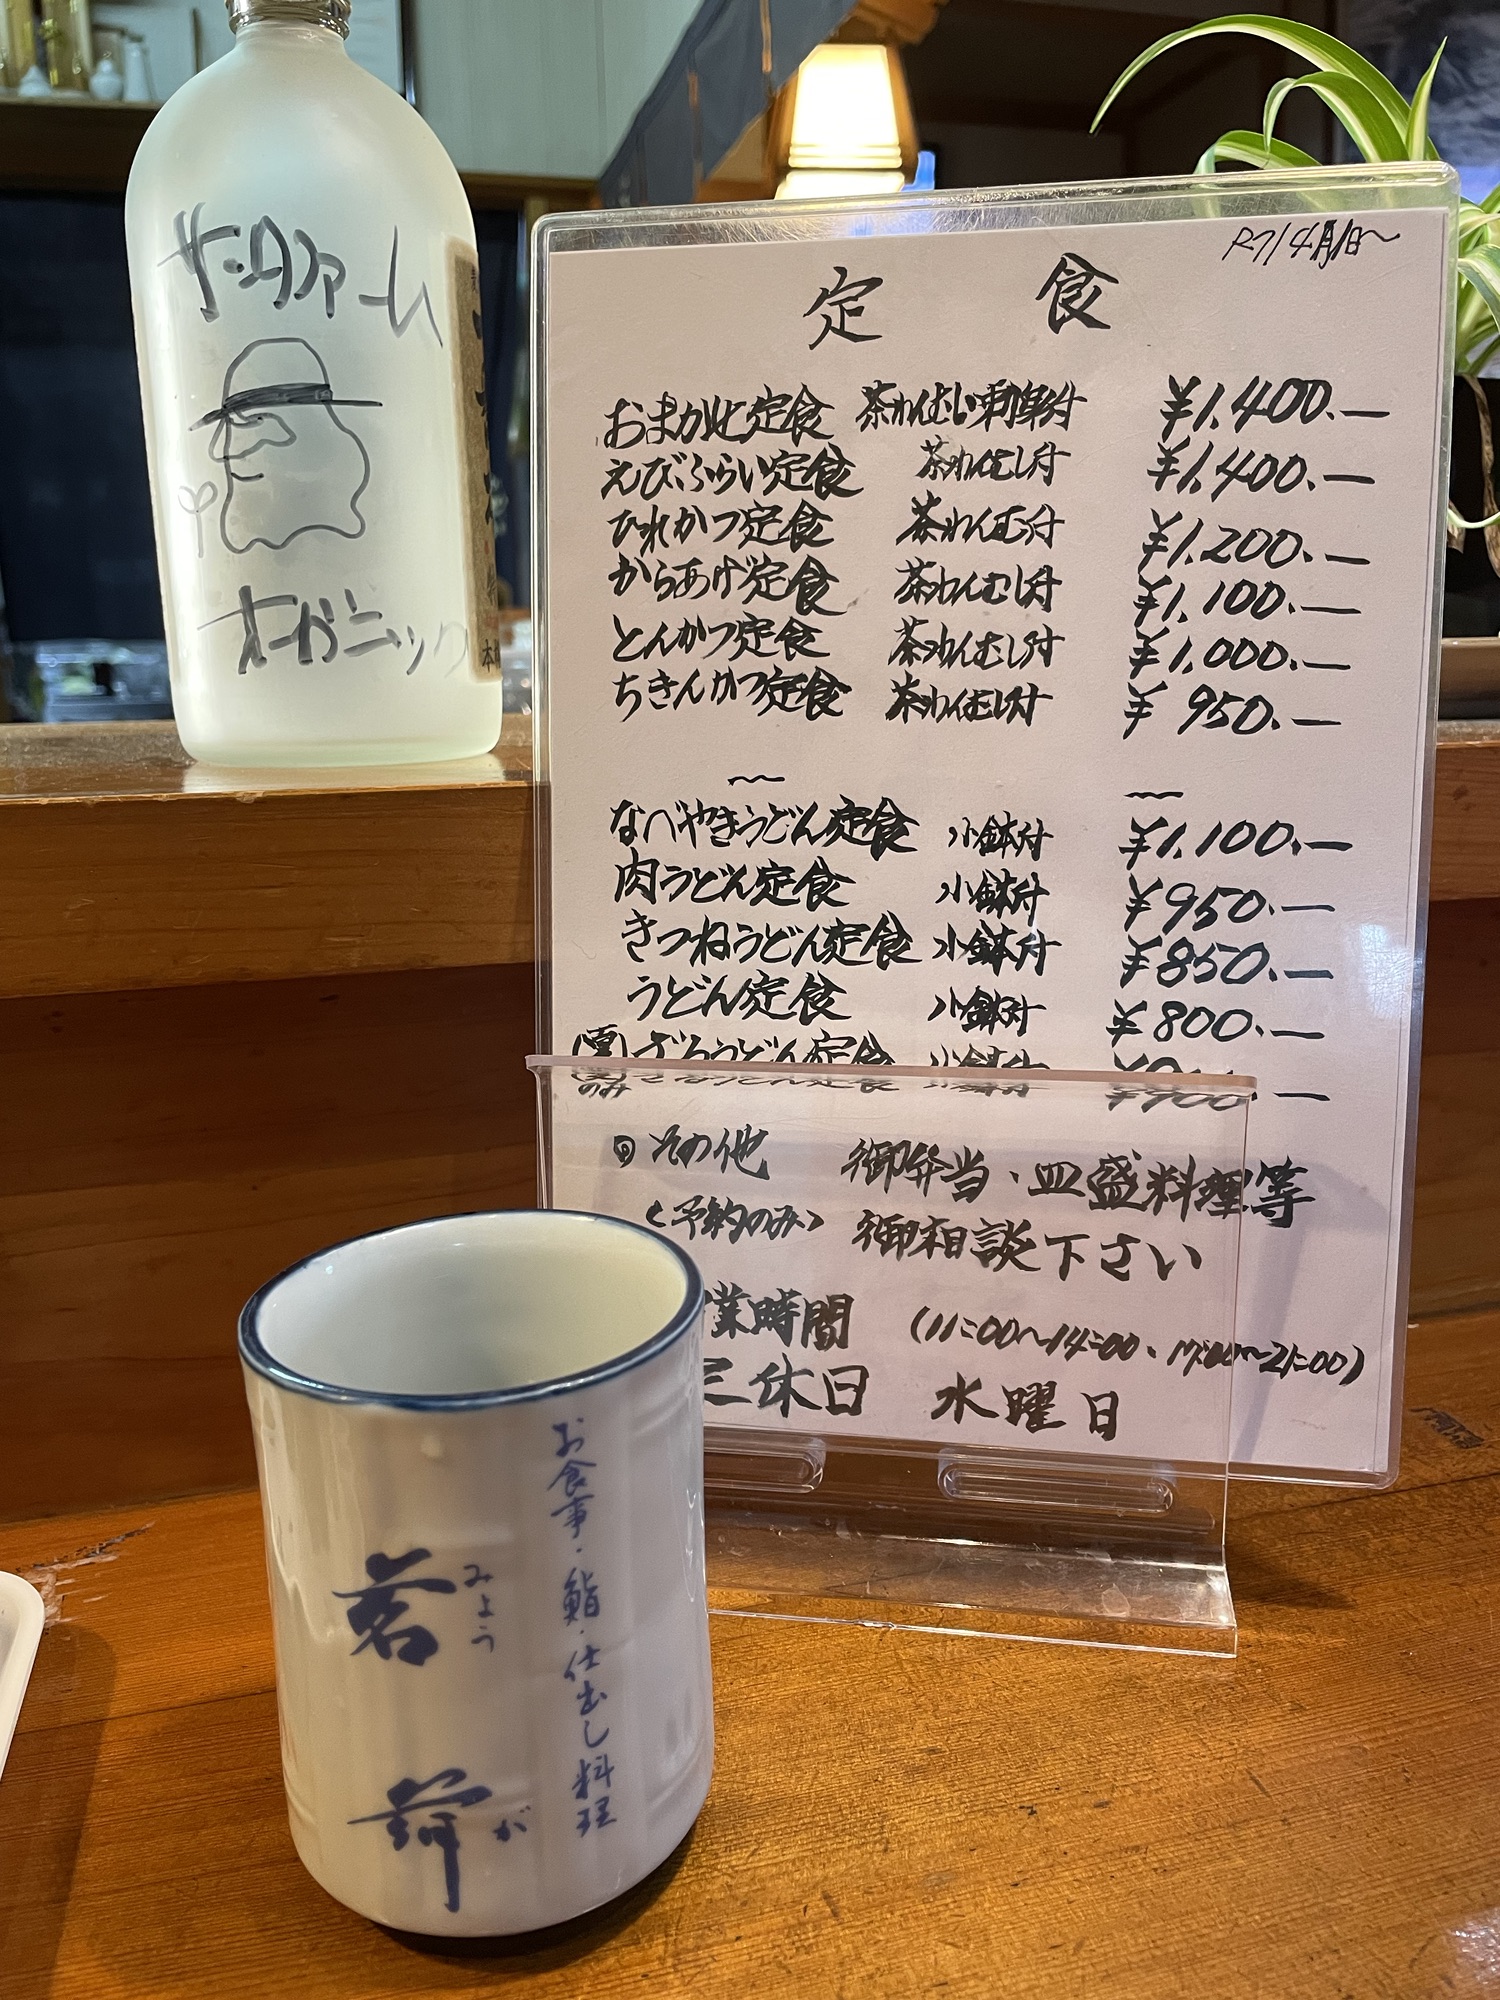 サンファーム
オーガニック
R7/4月1日〜
定食
おまかせ定食 茶わんむし刺身付 ¥1,400.ー
えびふらい定食 茶わんむし付 ¥1,400.ー
ひれかつ定食 茶わんむし付 ¥1,200.ー
からあげ定食 茶わんむし付 ¥1,100.ー
とんかつ定食 茶わんむし付 ¥1,000.ー
ちきんかつ定食 茶わんむし付 ¥950.ー
〜 〜
なべやきうどん定食 小鉢付 ¥1,100.ー
肉うどん定食 小鉢付 ¥950.ー
きつねうどん定食 小鉢付 ¥850.ー
うどん定食 小鉢付 ¥800.ー
(夏のみ) ざるうどん定食 小鉢付 ¥900.ー
◎その他 御弁当・皿盛料理等
<予約のみ> 御相談下さい
業時間 (11:00〜14:00、17:00〜21:00)
定休日 水曜日
お食事・鮨・仕出し料理
茗荷
みょうが